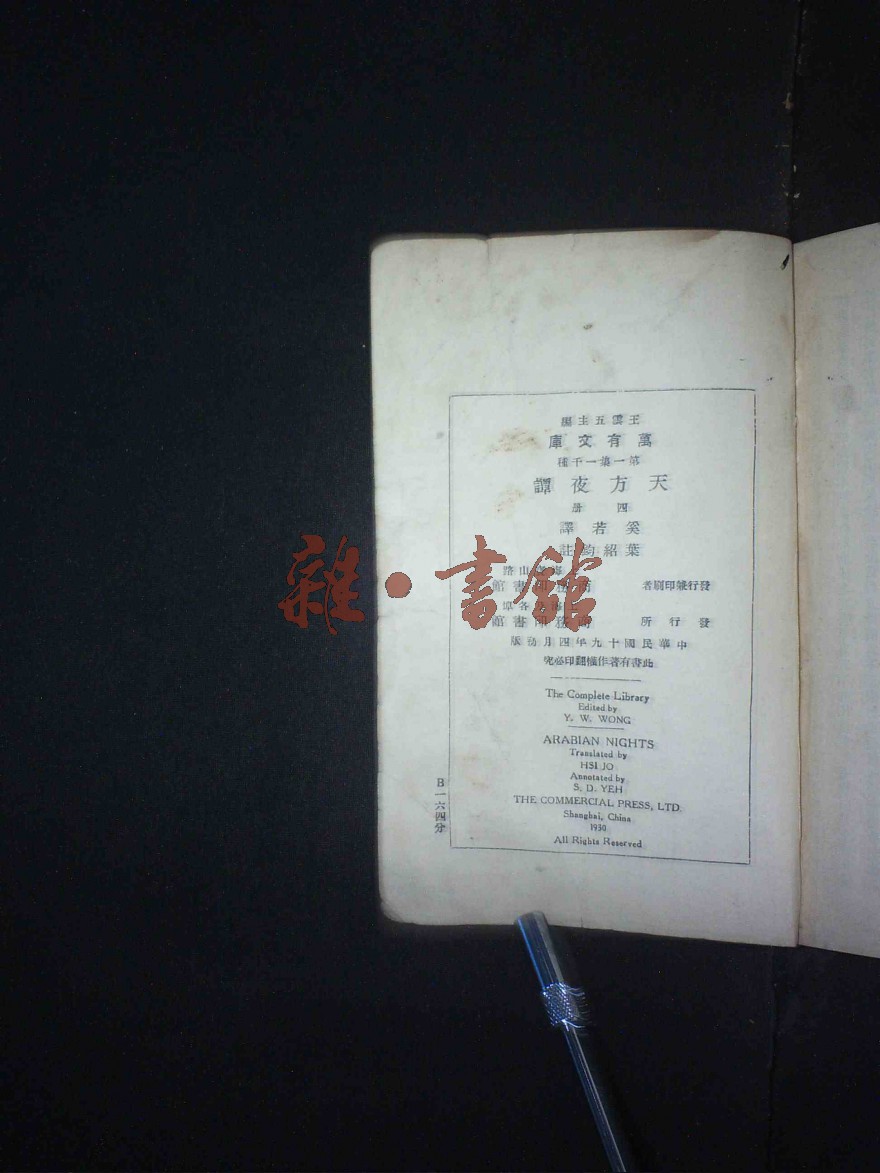 王雲五主編
萬有文庫
第一集一千種
天方夜譚
四冊
奚若譯
葉紹鈞註
山路
發行兼印刷者 商務印書館
各埠
發行所 商務印書館
中華民國十九年四月初版
此書有著作權翻印必究
The Complete Library
Edited by
Y. W. WONG
ARABIAN NIGHTS
Translated by
HSI JO
Annotated by
S. D. YEH
THE COMMERCIAL PRESS, LTD.
Shanghai, China
1930
All Rights Reserved
B一六四分
雜·書館